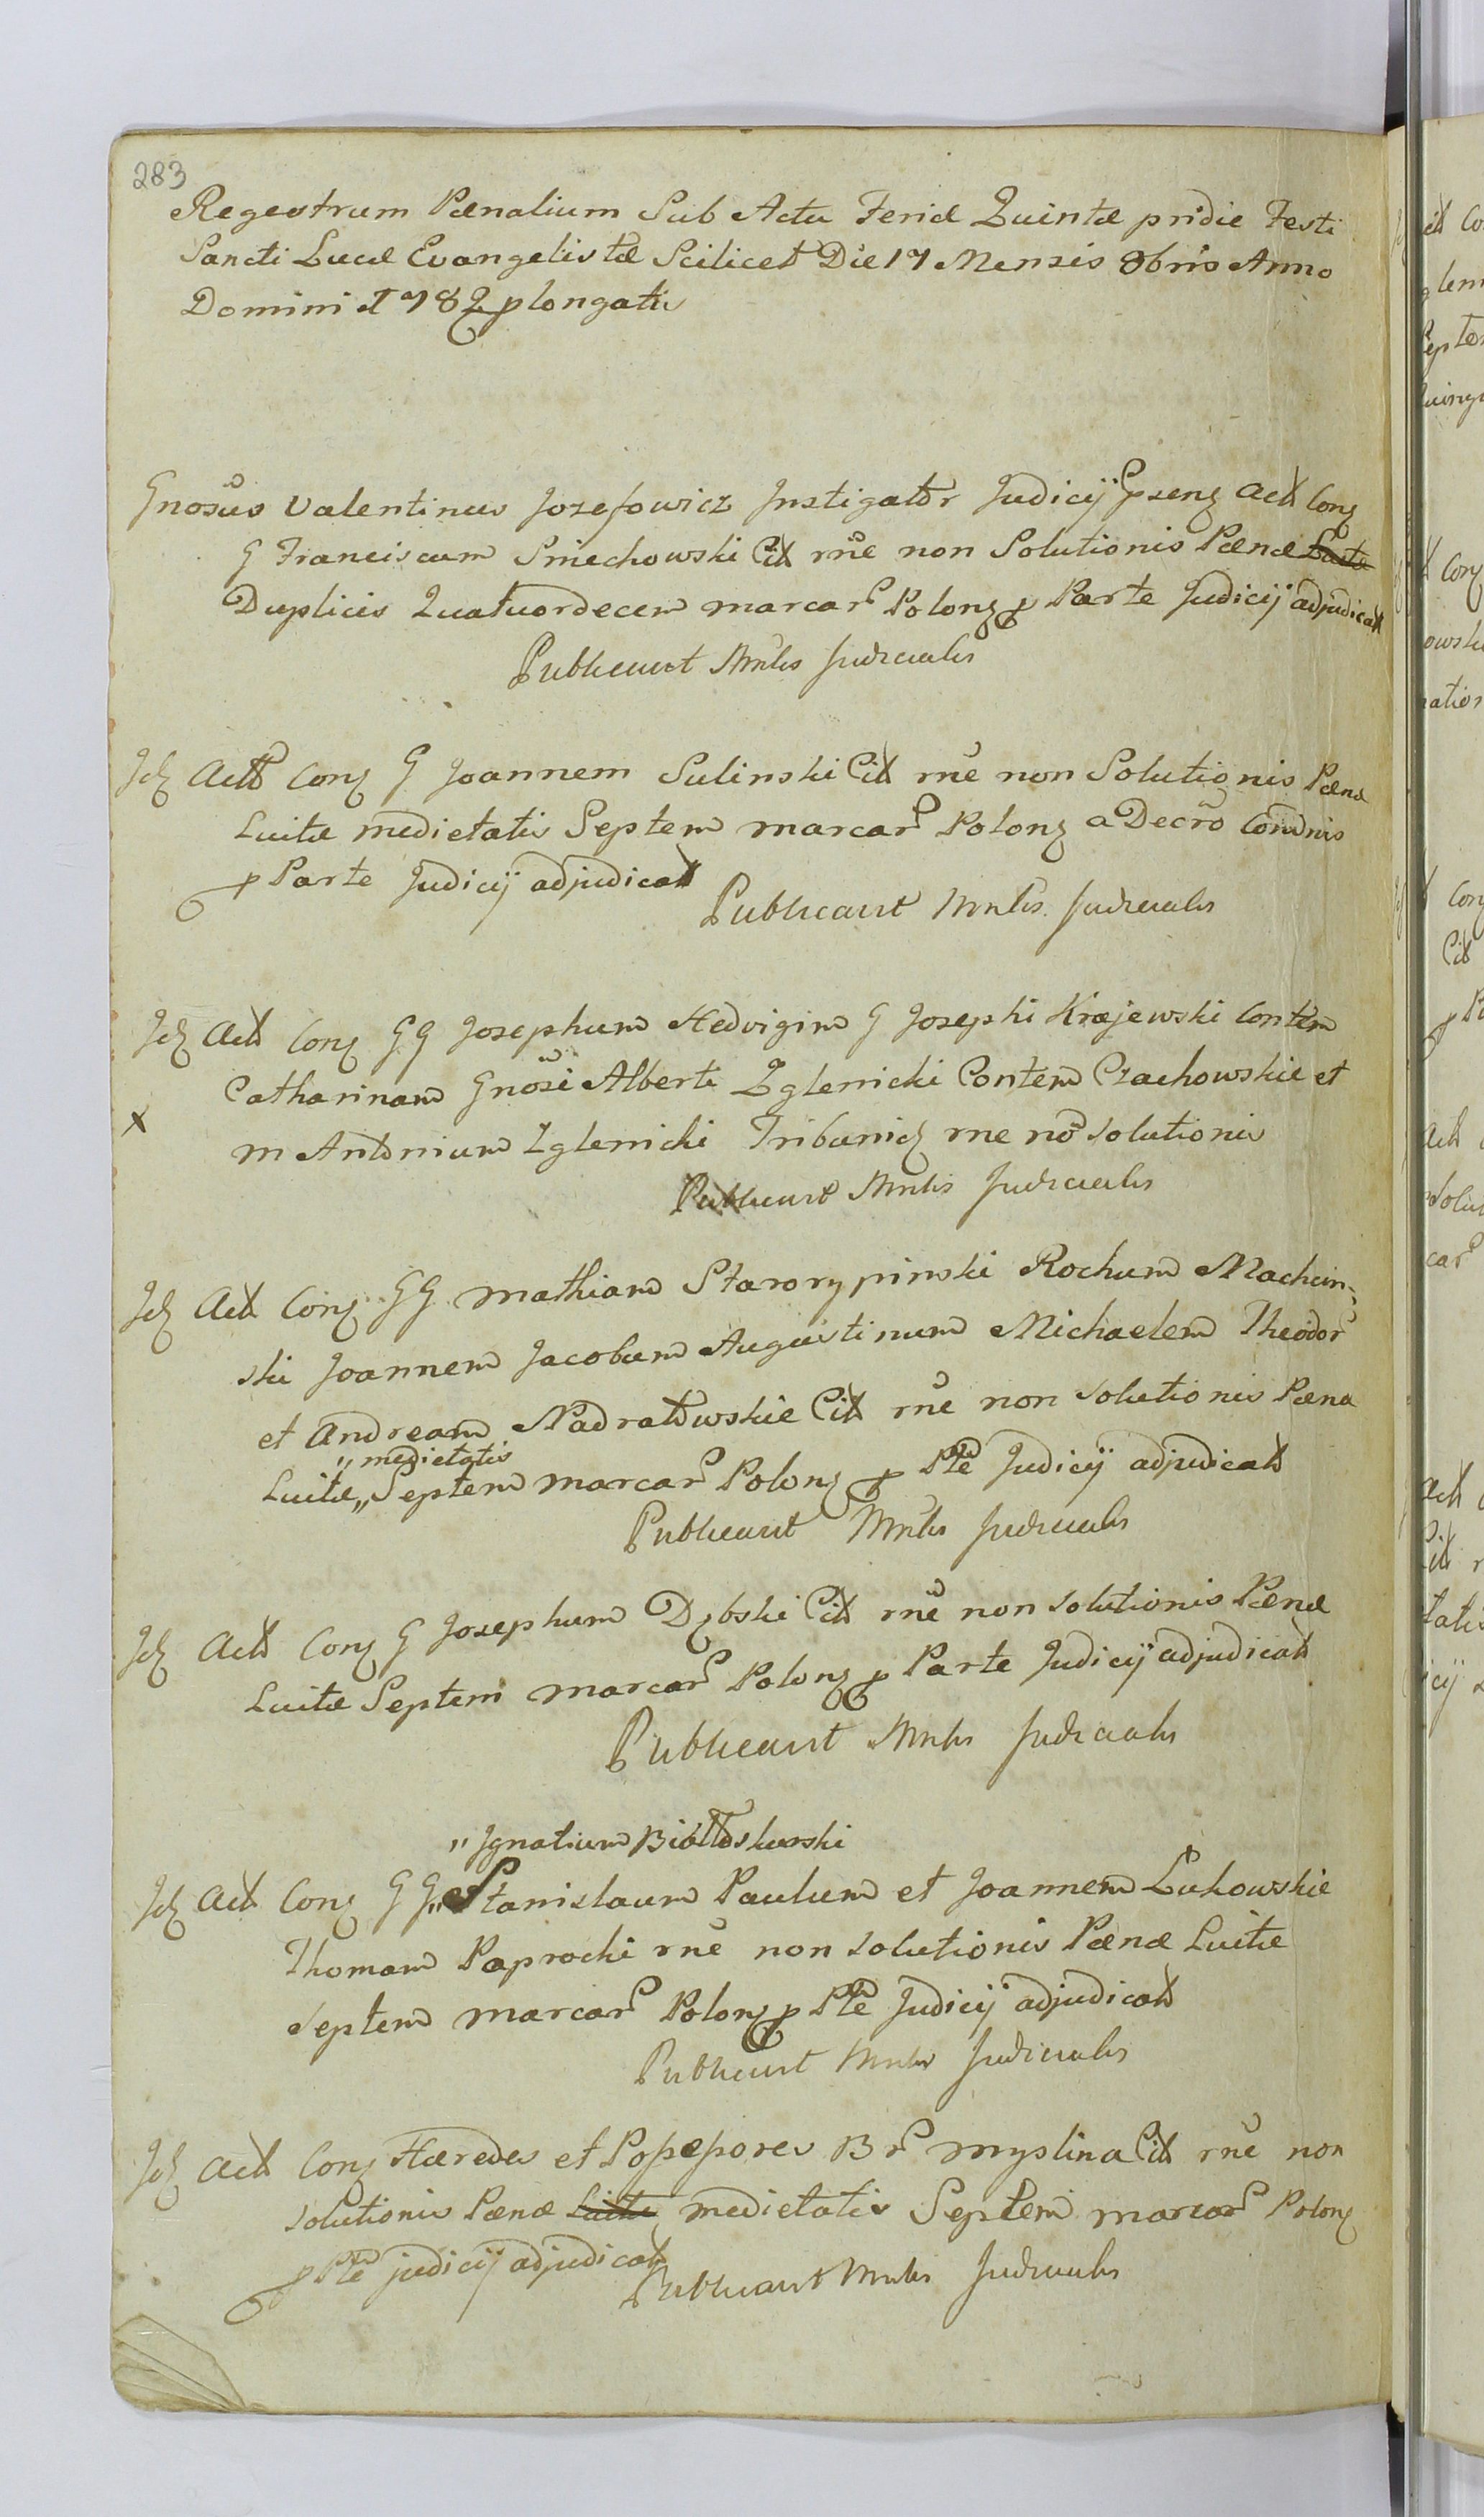 283
Regestrum Pænalium Sub Actu Feriæ Quintæ pridie Festi
Sancti Lucæ Evangelistæ Scilicet Die 17 Mensis 8bris Anno
Domini 1782 plongatu
Gnosus Valentinus Jozefowicz Instigator Judicij psens Act Con
G Franciscum Smiechowski Cit rne non Solutionis Pænæ Luitæ
Duplicis Quatuordecem marcar Polon p Parte Judicij adjudicat
Publicavit Mnlis Judicialis
Id Act Con G Joannem Sulinski Cit rne non Solutionis Pænæ
Luitæ medietatis Septem marcar Polon a Decro Comdnis
p Parte Judicij adjudicat
Publicavit Mnlis Judicialis
Id Act Con GG Josephum Hedvigim G Josephi Krajewski Contem
Catharinam Gnosi Alberti Zglenicki Contem Czachowskie et
x
M Antonium Zglenicki Tribunid rne no solutionis
Publicavit Mnlis Judicialis
Id Act Con GG Mathiam Starorypinski Rochum Machcin-
ski Joannem Jacobum Augustinum Michaelem Theodor
et Andream Nadratowskie Cit rne non solutionis Pæna
„medietatis
Luitæ„ Septem marcar Polon p Pte Judicij adjudicat
Publicavit Mnlis Judicialis
Id Act Con G Josephum Dębski Cit rne non solutionis Pænæ
Luitæ Septem marcar Polon p Parte Judicij adjudicat
Publicavit Mnlis Judicialis
„Ignatium Białoskurski
Id Act Con GG„ Stanislaum Paulum et Joannem Lukowskie
Thomam Paprocki rne non solutionis Pænæ Luitæ
septem marcar Polon p Pte Judicij adjudicat
Publicavit Mnlis Judicialis
Id Act Con Hæredes et Possessores Br Myslina Cit rne non
solutionis Pænæ Luitæ medietatis Septem marcar Polon
p Pte judicij adjudicat
Publicavit Mnlis Judicialis